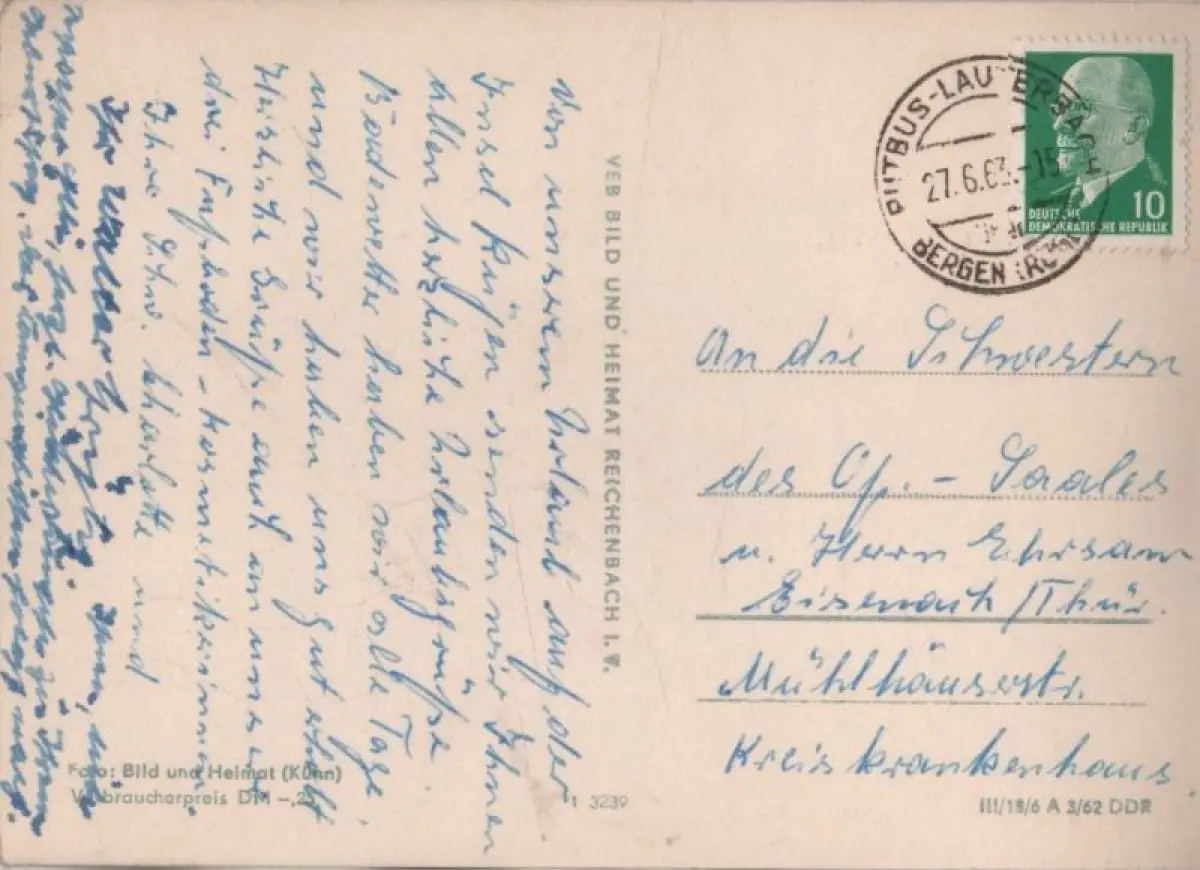 Von unserem Urlaub auf der
Insel Rügen senden wir Ihnen
allen herzliche Urlaubsgrüße
Badewetter haben wir alle Tage
und wir haben uns gut erholt
Herzliche Grüße auch an unsere
drei Fußboden-kosmetikerinnen.
Ihre Schw. Charlotte und
Ihr
VEB BILD UND HEIMAT REICHENBACH I. V.
Foto: Bild und Heimat (Kühn)
Verbraucherpreis DM -,25
1 3239
PUTBUS-LAUTERBACH
27.6.63.-15
BERGEN (RÜGEN)
10
DEUTSCHE
DEMOKRATISCHE REPUBLIK
An die Schwestern
des Op.-Saales
u. Herrn Ehrsam
Eisenach/Thür.
Mühlhäuserstr.
Kreiskrankenhaus
III/18/6 A 3/62 DDR